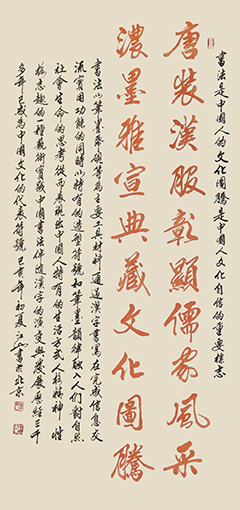 書法是中國人的文化圖騰是中國人文化自信的重要標志
唐裝漢服彰顯儒家風采
濃墨雅宣典藏文化圖騰
書法以筆墨紙硯等為主要工具材料通過漢字書寫在完成信息交
流實用功能的同時以特有的造型符號和筆墨韻律融入人們對自然
社會生命的思考從而表現出中國人特有的生活方式人格精神性
格志趣的一種藝術實踐中國書法伴隨漢字的演變與發展歷經三千
多年已成為中國文化的代表符號己亥年初夏江山書於北京